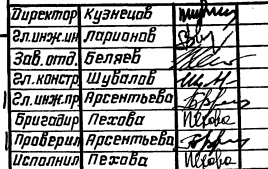 Директор Кузнецов
Гл.инж.ин Ларионов
Зав.отд. Беляев
Гл.констр. Шувалов
Гл.инж.пр. Арсентьева
Бригадир Пехова Пехова
Проверил Арсентьева
Исполнил Пехова Пехова